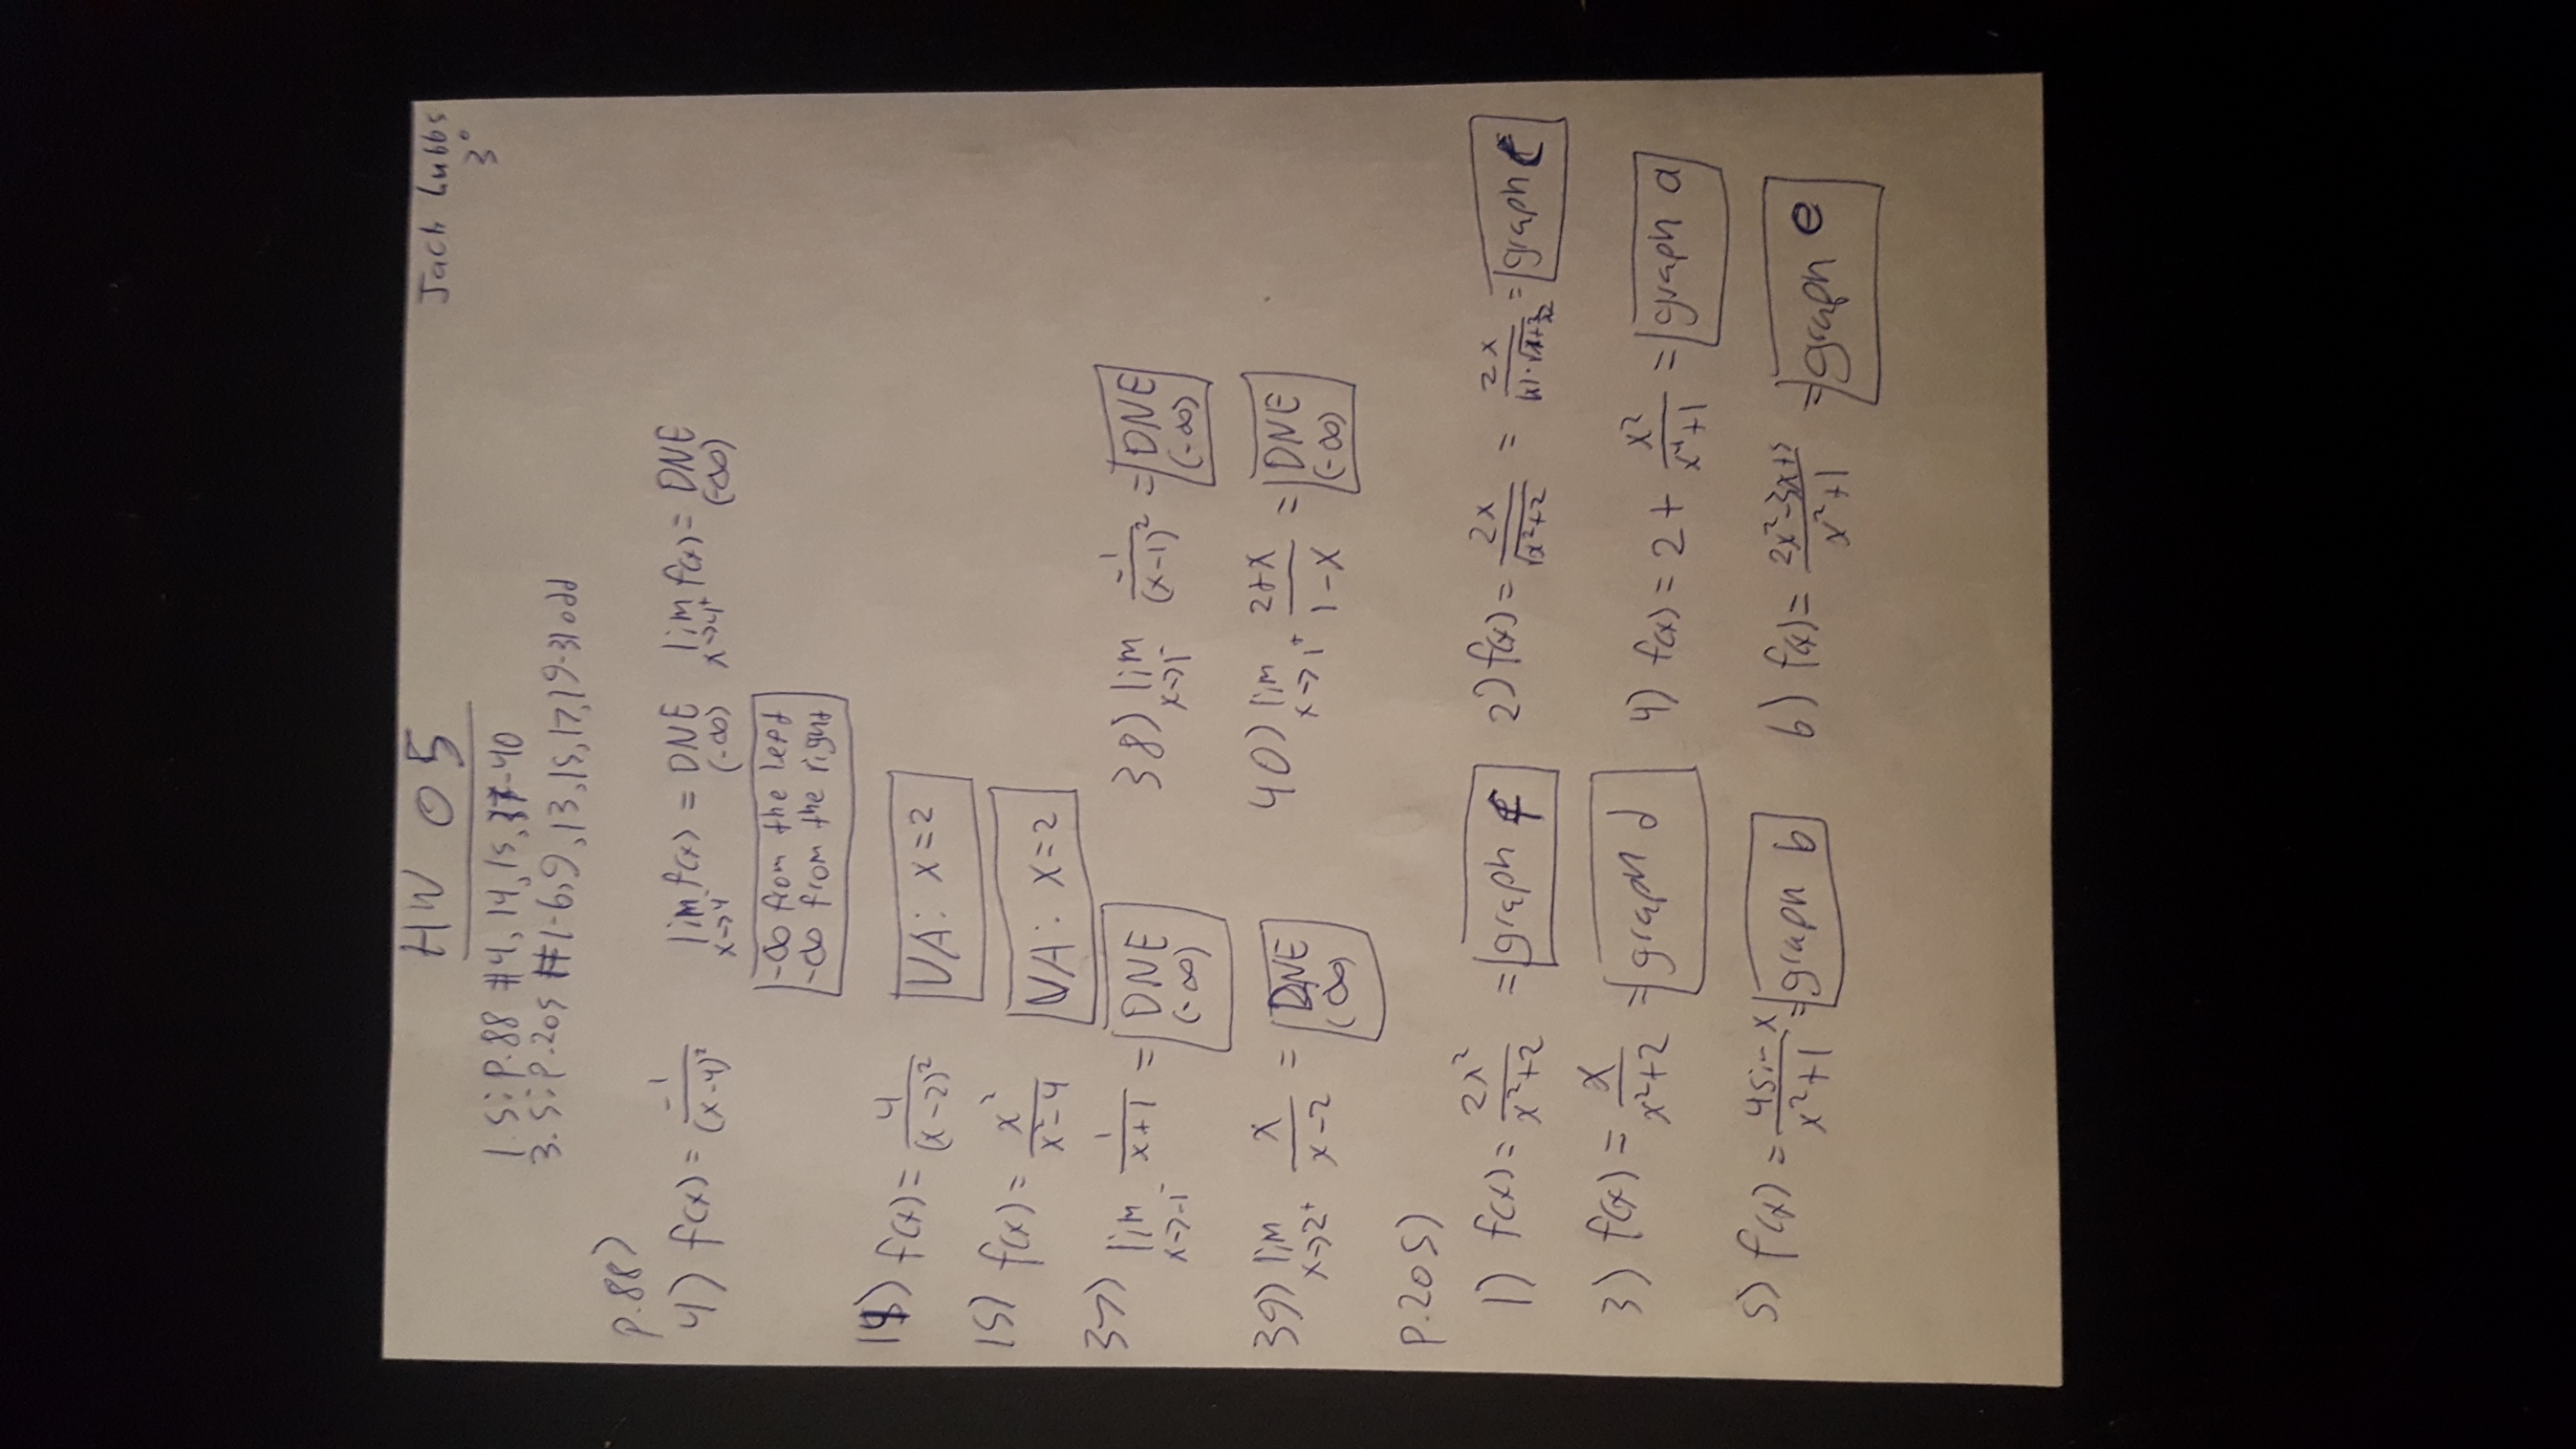 HW 05
Jack Lubbs
3°
1.5: P.88 #4, 14, 15, 37-40
3.5: P.205 #1-6, 9, 13, 15, 17, 19-31 odd
p.88)
4) f(x) = -1/(x-4)² lim x→4⁻ f(x) = DNE (-∞) lim x→4⁺ f(x) = DNE (-∞)
-∞ from the left
-∞ from the right
14) f(x) = 4/(x-2)² VA: x=2
15) f(x) = x²/(x²-4) VA: x=2
37) lim x→-1⁻ 1/(x+1) = DNE (-∞) 38) lim x→1⁻ -1/(x-1)² = DNE (-∞)
39) lim x→2⁺ x/(x-2) = DNE (∞) 40) lim x→1⁺ (2+x)/(1-x) = DNE (-∞)
P.205)
1) f(x) = 2x²/(x²+2) = graph f 2) f(x) = 2x/√(x²+2) = 2x = graph
3) f(x) = x/(x²+2) = graph d 4) f(x) = 2 + x²/(x⁴+1) = graph a
5) f(x) = 4sin x/(x²+1) = graph b 6) f(x) = (2x²-3x+5)/(x²+1) = graph e